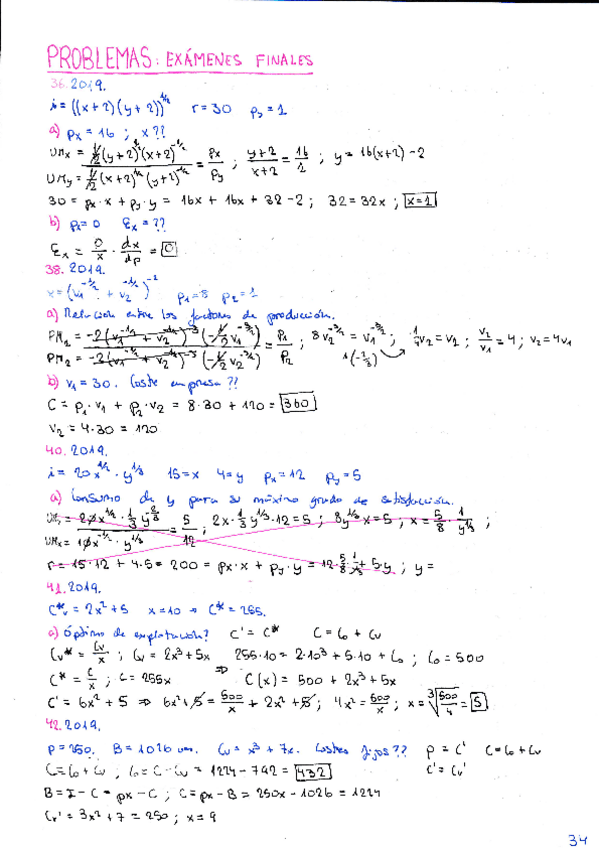 PROBLEMAS: EXÁMENES FINALES
36.2019.
i = ((x+2)(y+2))^1/2 r=30 py=1
a) px = 16 ; x??
UMx = 1/2(y+2)^1/2(x+2)^-1/2 / UMy = 1/2(x+2)^1/2(y+2)^-1/2 = px/py ; y+2/x+2 = 16/1 ; y = 16(x+2) - 2
30 = px·x + py·y = 16x + 16x + 32 - 2 ; 32 = 32x ; x=1
b) = 0 Ex = ??
Ex = 0/x · dx/dp = 0
38.2019.
x = (v1^-1/2 + v2^-1/2)^-2 p1=8 p2=1
a) Relación entre los factores de producción.
= p1/p2 ; ; v2/v1 = 4 ; v2 = 4v1
b) v1 = 30. Coste empresa??
C = p1·v1 + p2·v2 = 8·30 + 120 = 360
v2 = 4·30 = 120
40.2019.
i = 20x^1/2 · y^1/3 15=x 4=y px=12 py=5
a) Consumo de y para su máximo grado de satisfacción.
= 5/12 ; ; x = 5/8 · ;
r = 15·12 + 4·5 = 200 = px·x + py·y = ; y =
41.2019.
C*v = 2x² + 5 x=10 → C* = 255.
a) Óptimo de explotación? C' = C* C = Co + Cv
Cv* = Cv/x ; Cv = 2x³ + 5x 255·10 = 2·10³ + 5·10 + Co ; Co = 500
C* = C/x ; C = 255x ⇒ C(x) = 500 + 2x³ + 5x
C' = 6x² + 5 ⇒ 6x² + 5 = 500/x + 2x² + 5 ; 4x² = 500/x ; x = ∛500/4 = 5
42.2019.
p = 250. B = 1026 um. Cv = x³ + 7x. Costes fijos?? p = C' C = Co + Cv
C = Co + Cv ; Co = C - Cv = 1224 - 792 = 432 C' = Cv'
B = I - C = px - C ; C = px - B = 250x - 1026 = 1224
Cv' = 3x² + 7 = 250 ; x = 9
34